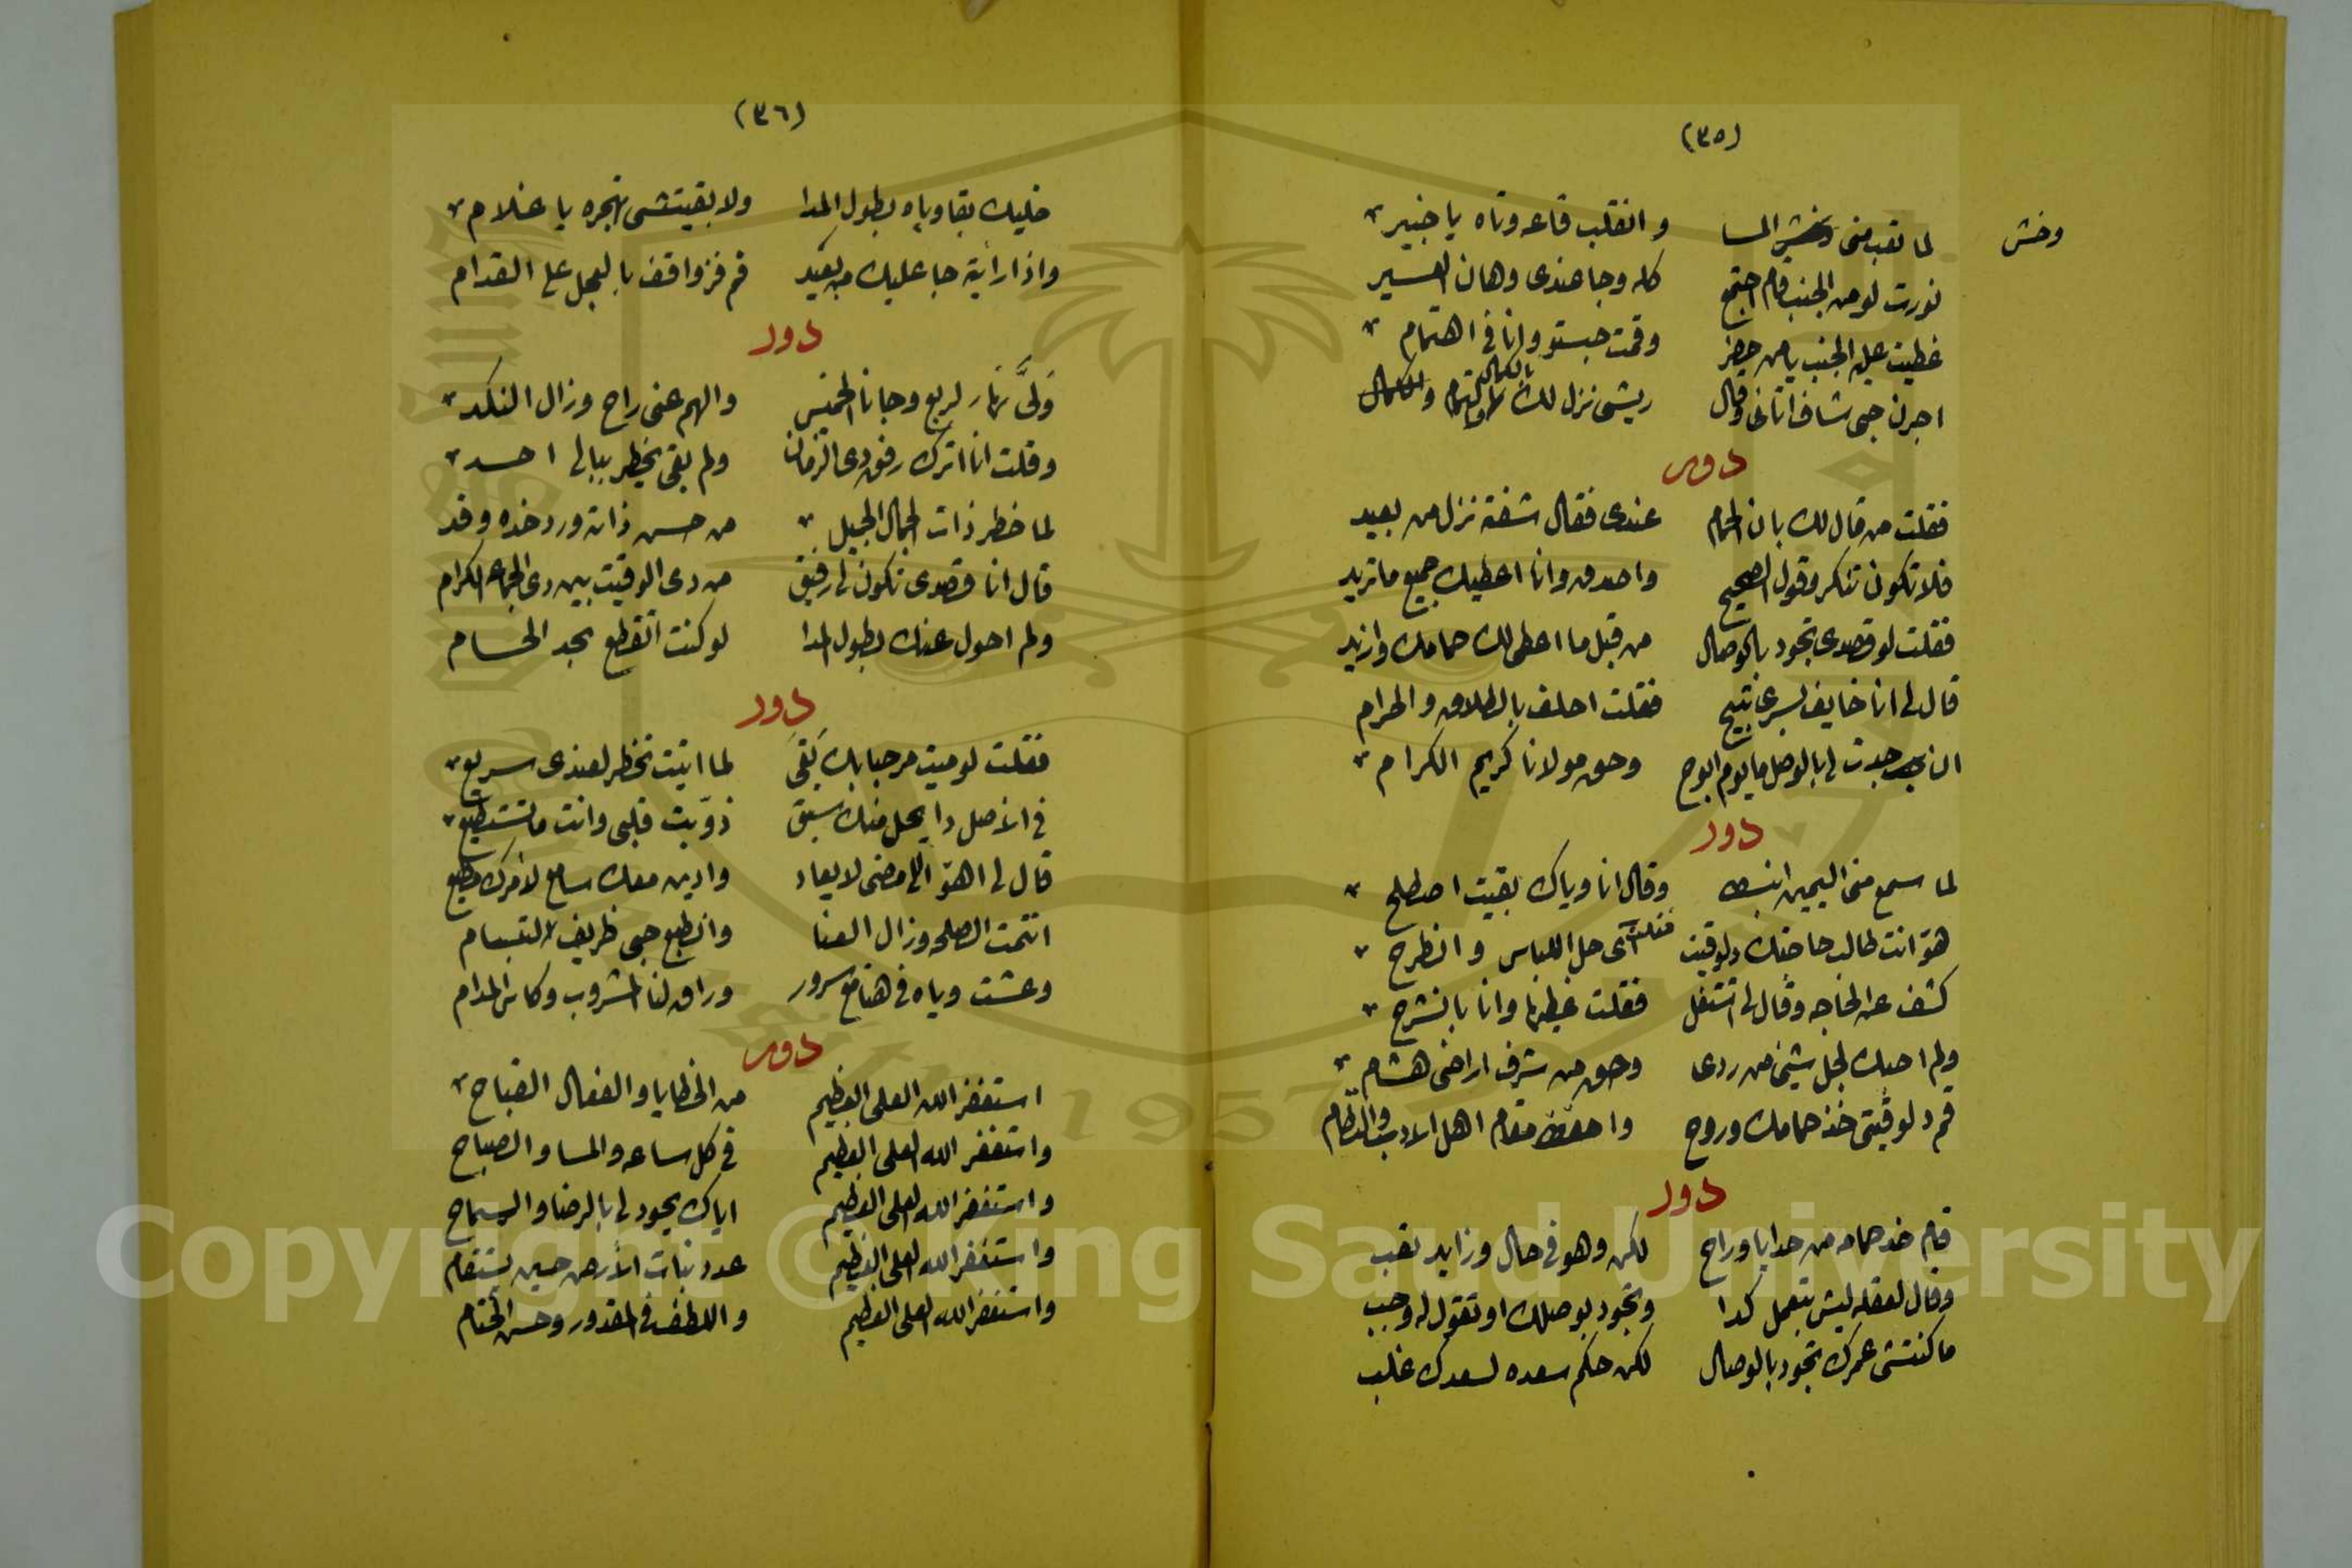 (٣٥)
وخش لما تعب منى وخش المسا وانقلب قاعه وتاه يا خبير
نورت لو من الجنب قام اجتمع كله وجا عندى وهان العسير
غطيت عليه الجنب يا من حضر وقمت حبستو وانا فى اهتمام
اجرن جى شاف اتانى وقال ريشى نزل لك بالكمال والتمام
دور
فقلت من قال لك بان الحمام عندى فقال شفته نزل من بعيد
فلا تكون تنكر وقول الصحيح واصدق وانا اعطيك جميع ما تريد
فقلت لو قصدى تجود بالوصال من قبل ما اعطى لك حمامك وازيد
قال لى انا خايف لسرى تبيح فقلت احلف بالطلاق والحرام
ان جدت لى بالوصل ما يوم ابوح وحق مولانا كريم الكرام
دور
لما سمع منى اليمين انبسط وقال انا وياك بقيت اصطلح
هو انت طالب حاجتك دلوقيت فقلت اى حل اللباس وانطرح
كشف عن الحاجه وقال لى اتتقل فقلت غيطرنا وانا بانشرح
ولم احبك لجل شيئ من ردى وحق من شرف اراضى هشام
قم دلوقيتى خذ حمامك وروح واحفظ مقام اهل الادب والنظام
دور
قام خد حمامه من حدايا وراح لكن وهو فى حال وزايد تعب
وقال لعقله ليش بتعمل كدا وتجود بوصلك او تقول له وجب
ما كنتشى عمرك تجود بالوصال لكن حكم سعده لسعدك غلب
(٣٦)
خليك بقا وياه بطول المدا ولا بقيتشى تهجره يا غلام
واذا رايته جا عليك من بعيد قم فز واقف بالعجل على القدام
دور
ولى نهار لربع وجانا الخميس والهم عنى راح وزال النكد
وقلت انا اترك رفق دى الزمان ولم بقى يخطر ببالى احد
لما خطر ذات الجمال الجميل من حسن ذاته ورد خده وقد
قال انا قصدى تكون لى رفيق من دى الوقيت بين دى الجماعه الكرام
ولم احول عنك بطول المدا لو كنت اتقطع بحد الحسام
دور
فقلت لو ميت مرحبا بك بقى لما اتيت تخطر لعندى سريع
فى الاصل دا يحل منك سبق ذوبت قلبى وانت ما تستطيع
قال لى اهو اللى مضى لا يعاد وادين معك سامع لامرك مطيع
اتتمت الصلحه وزال العنا وانطبع حبى ظريف الابتسام
وعشت وياه فى هنا مع سرور وراق لنا المشروب وكاس المدام
دور
استغفر الله العلى العظيم من الخطايا والفعال القباح
واستغفر الله العلى العظيم فى كل ساعه والمسا والصباح
واستغفر الله العلى العظيم اياك يجود لى بالرضا والسماح
واستغفر الله العلى العظيم عدد نبات الأرض حين يستقام
واستغفر الله العلى العظيم واللطف فى المقدور وحسن الختام
Copyright © King Saud University
1957